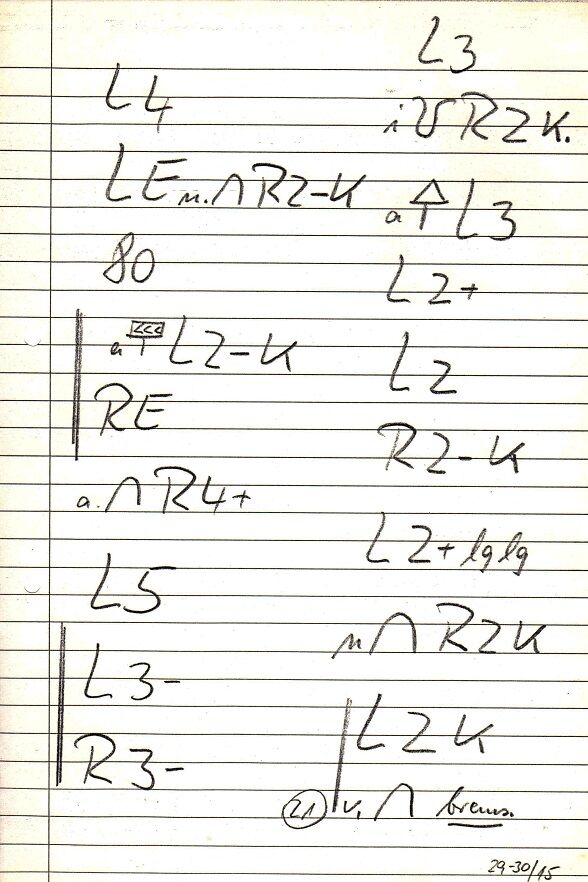 L4
LE n. ∩ R2-K
80
a <<< L2-K
RE
a. ∩ R4+
L5
L3-
R3-
L3
i R2K.
a L3
L2+
L2
R2-K
L2+ lg lg
n ∩ R2K
L2K
21 v. ∩ brems.
29-30/15